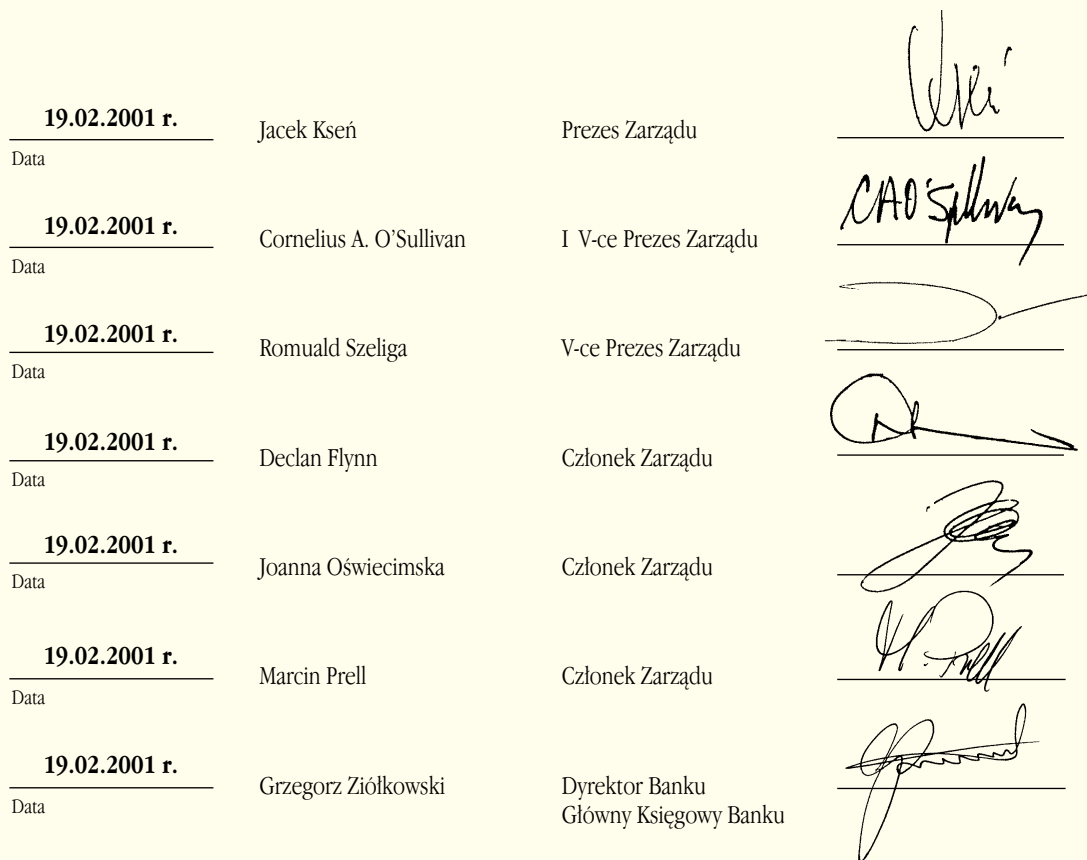 19.02.2001 r.
Data
Jacek Kseń
Prezes Zarządu
19.02.2001 r.
Data
Cornelius A. O'Sullivan
I V-ce Prezes Zarządu
19.02.2001 r.
Data
Romuald Szeliga
V-ce Prezes Zarządu
19.02.2001 r.
Data
Declan Flynn
Członek Zarządu
19.02.2001 r.
Data
Joanna Oświecimska
Członek Zarządu
19.02.2001 r.
Data
Marcin Prell
Członek Zarządu
19.02.2001 r.
Data
Grzegorz Ziółkowski
Dyrektor Banku
Główny Księgowy Banku